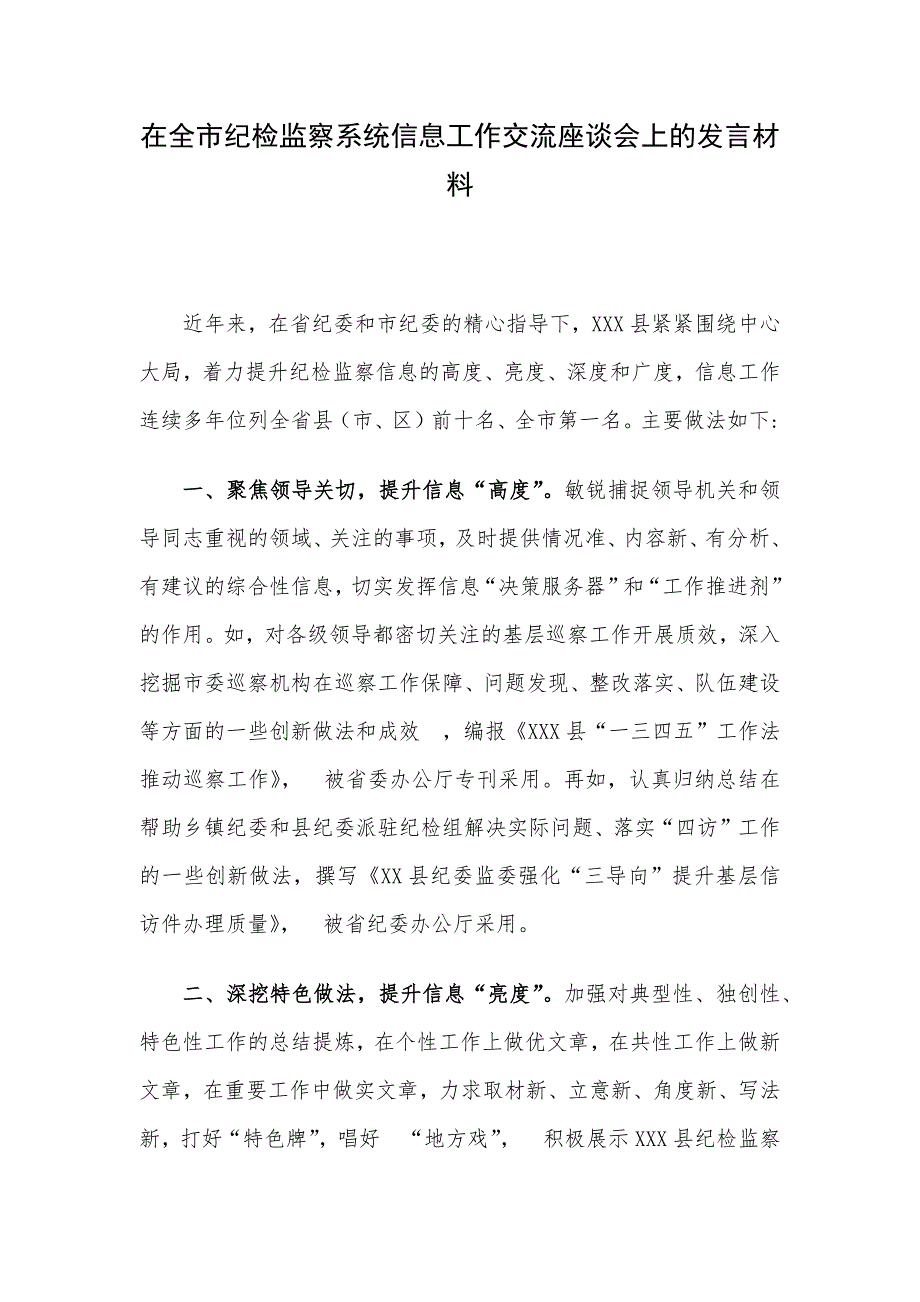 在全市纪检监察系统信息工作交流座谈会上的发言材
料
近年来，在省纪委和市纪委的精心指导下，XXX县紧紧围绕中心
大局，着力提升纪检监察信息的高度、亮度、深度和广度，信息工作
连续多年位列全省县（市、区）前十名、全市第一名。主要做法如下：
一、聚焦领导关切，提升信息“高度”。敏锐捕捉领导机关和领
导同志重视的领域、关注的事项，及时提供情况准、内容新、有分析、
有建议的综合性信息，切实发挥信息“决策服务器”和“工作推进剂”
的作用。如，对各级领导都密切关注的基层巡察工作开展质效，深入
挖掘市委巡察机构在巡察工作保障、问题发现、整改落实、队伍建设
等方面的一些创新做法和成效　，编报《XXX县“一三四五”工作法
推动巡察工作》，　被省委办公厅专刊采用。再如，认真归纳总结在
帮助乡镇纪委和县纪委派驻纪检组解决实际问题、落实“四访”工作
的一些创新做法，撰写《XX县纪委监委强化“三导向”提升基层信
访件办理质量》，　被省纪委办公厅采用。
二、深挖特色做法，提升信息“亮度”。加强对典型性、独创性、
特色性工作的总结提炼，在个性工作上做优文章，在共性工作上做新
文章，在重要工作中做实文章，力求取材新、立意新、角度新、写法
新，打好“特色牌”，唱好　“地方戏”，　积极展示XXX县纪检监察